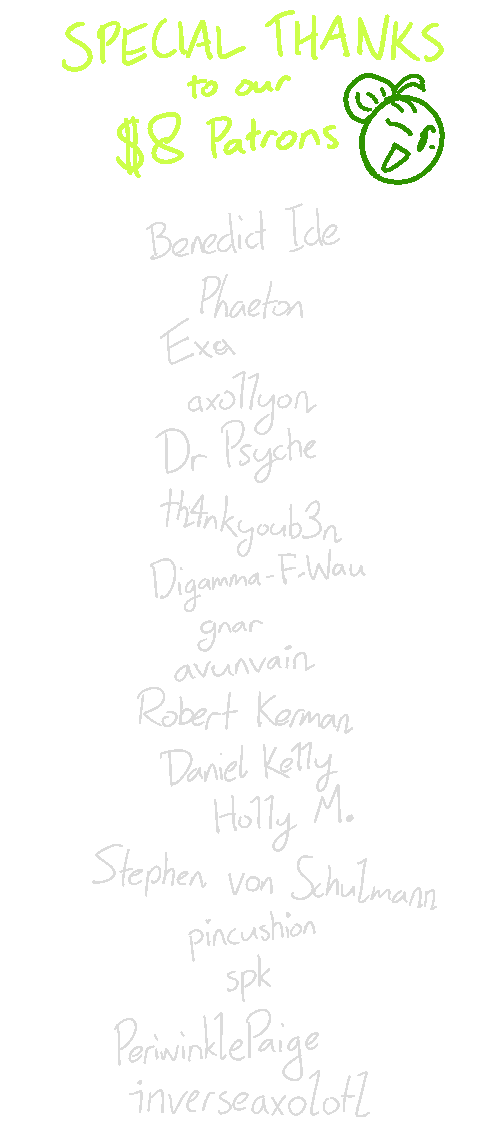 SPECIAL THANKS
to our
$8 Patrons
Benedict Ide
Phaeton
Exa
axollyon
Dr Psyche
th4nkyoub3n
Digamma-F-Wau
gnar
avunvain
Robert Kerman
Daniel Kelly
Holly M.
Stephen von Schulmann
pincushion
spk
PeriwinklePaige
inverseaxolotl